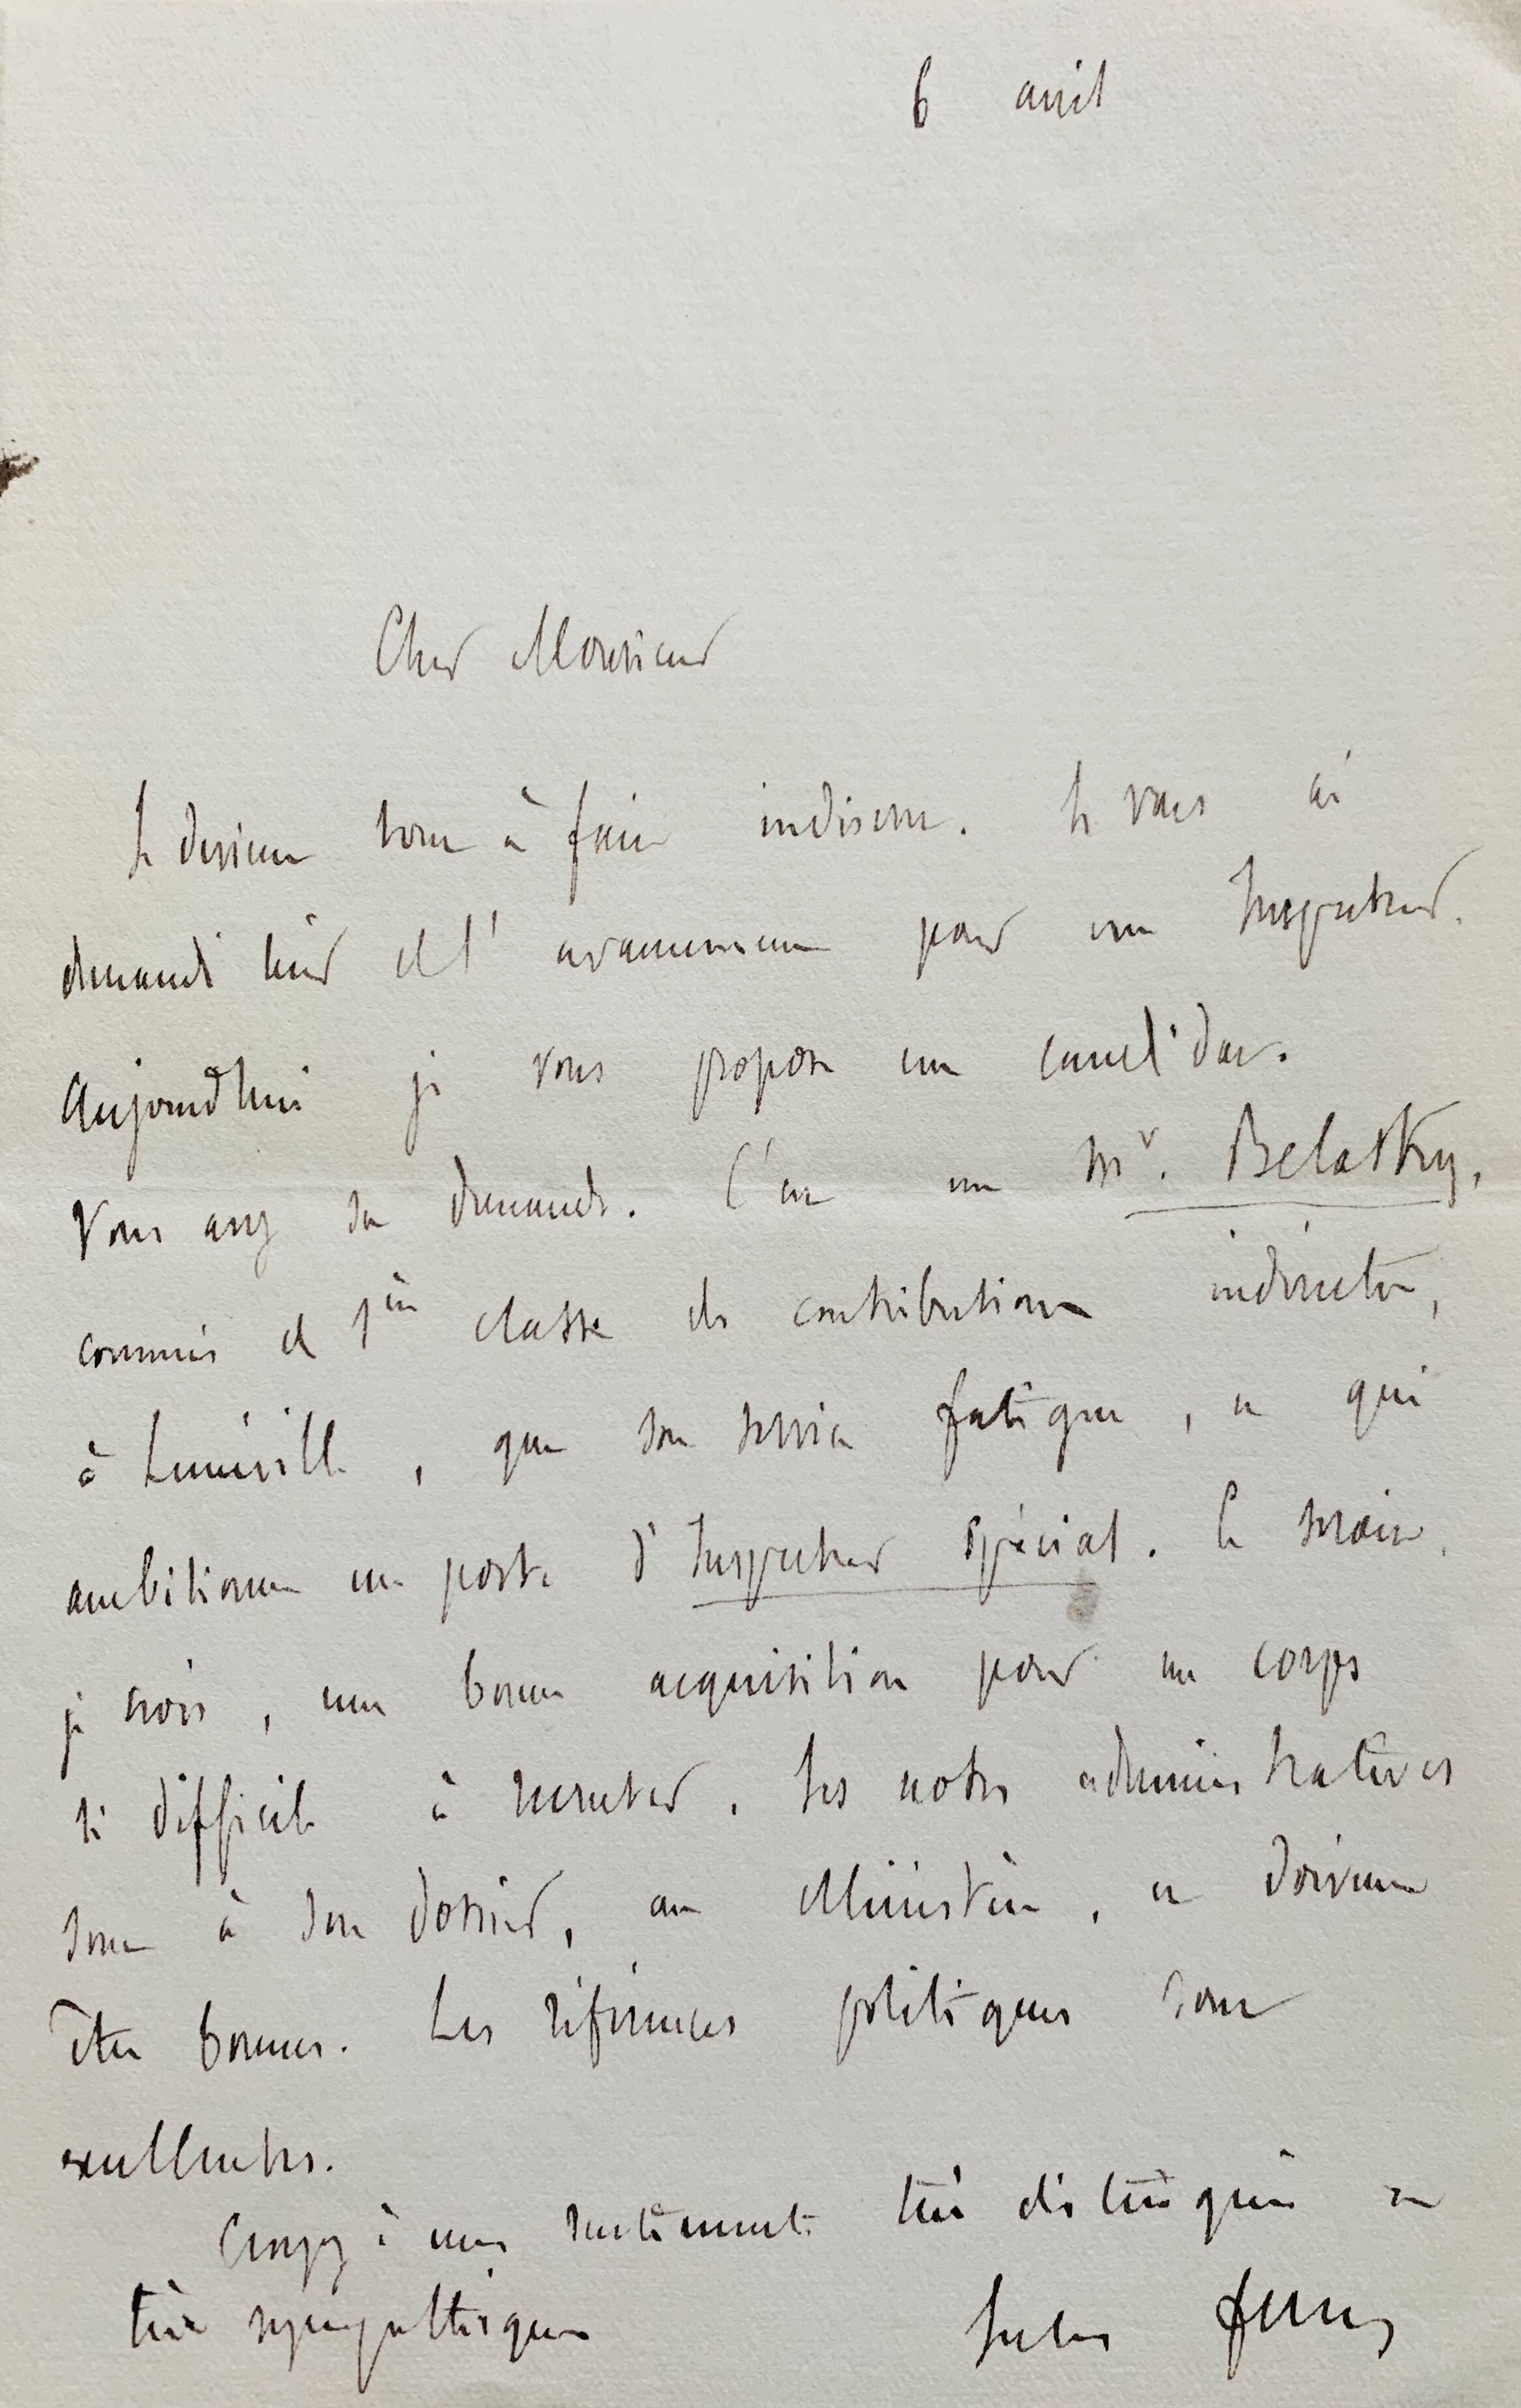 6 avril
Cher Monsieur
Je deviens tout à fait indiscret. Je vous ai
demandé hier de l'avancement pour un Inspecteur.
Aujourd'hui je vous propose un candidat.
Vous avez sa demande. C'est un Mr. Belatsky,
commis de 1ère classe des contributions indirectes,
à Lunéville, que son service fatigue, et qui
ambitionne un poste d'Inspecteur spécial. Ce serait,
je crois, une bonne acquisition pour un corps
si difficile à recruter. Ses notes administratives
sont à son dossier, au Ministère, et doivent
être bonnes. Les références politiques sont
excellentes.
Croyez à mes sentiments très distingués et
très sympathiques
Jules Ferry